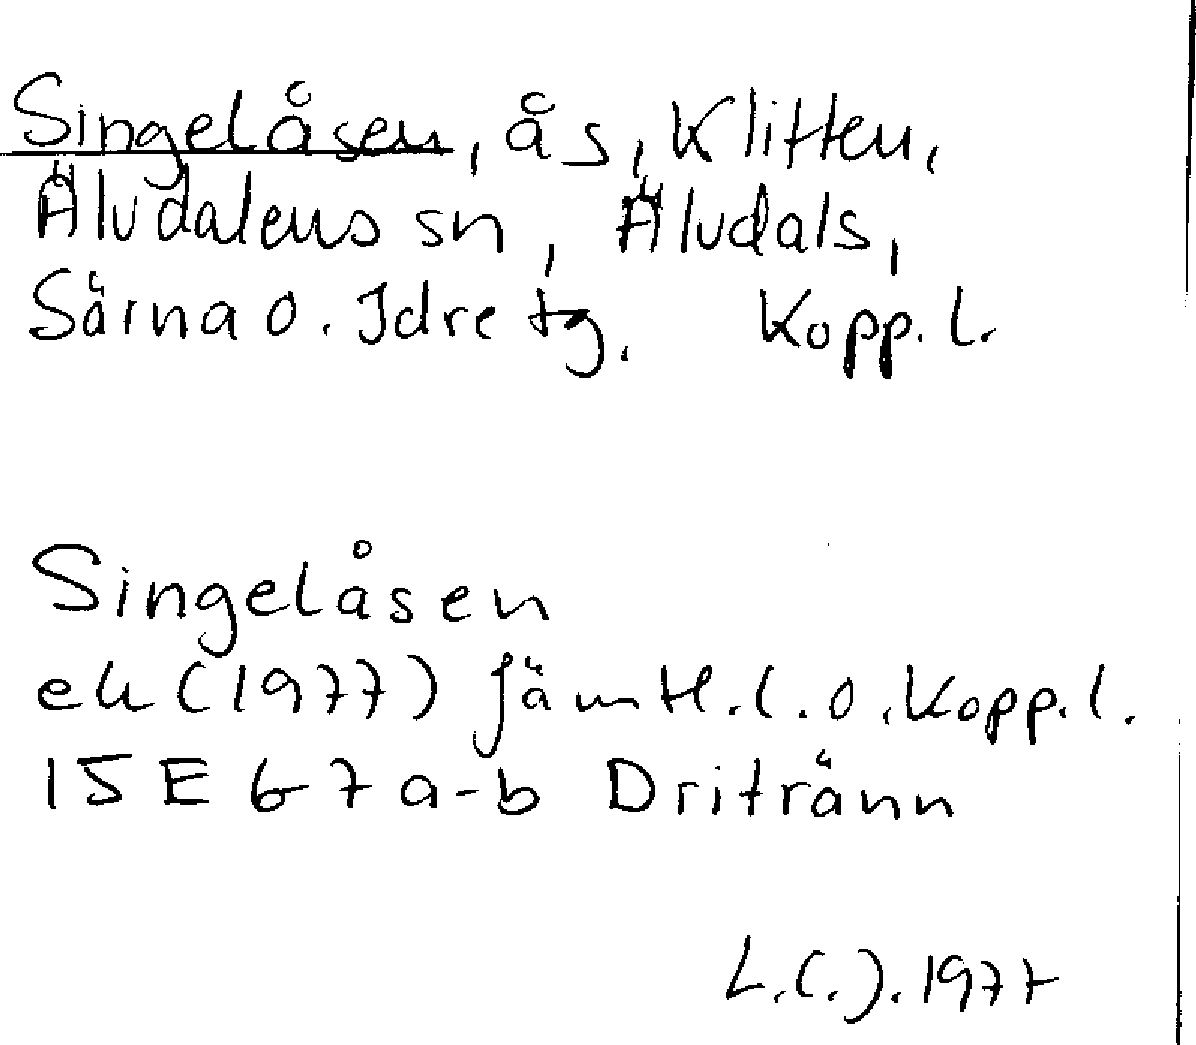 Singelåsen, ås, Klitten,
Älvdalens sn, Älvdals,
Särna o. Idre tg. Kopp. l.
Singelåsen
ek (1977) Jämtl. l. o. Kopp. l.
15 E 67 a-b Dritränn
L.C.J. 1977